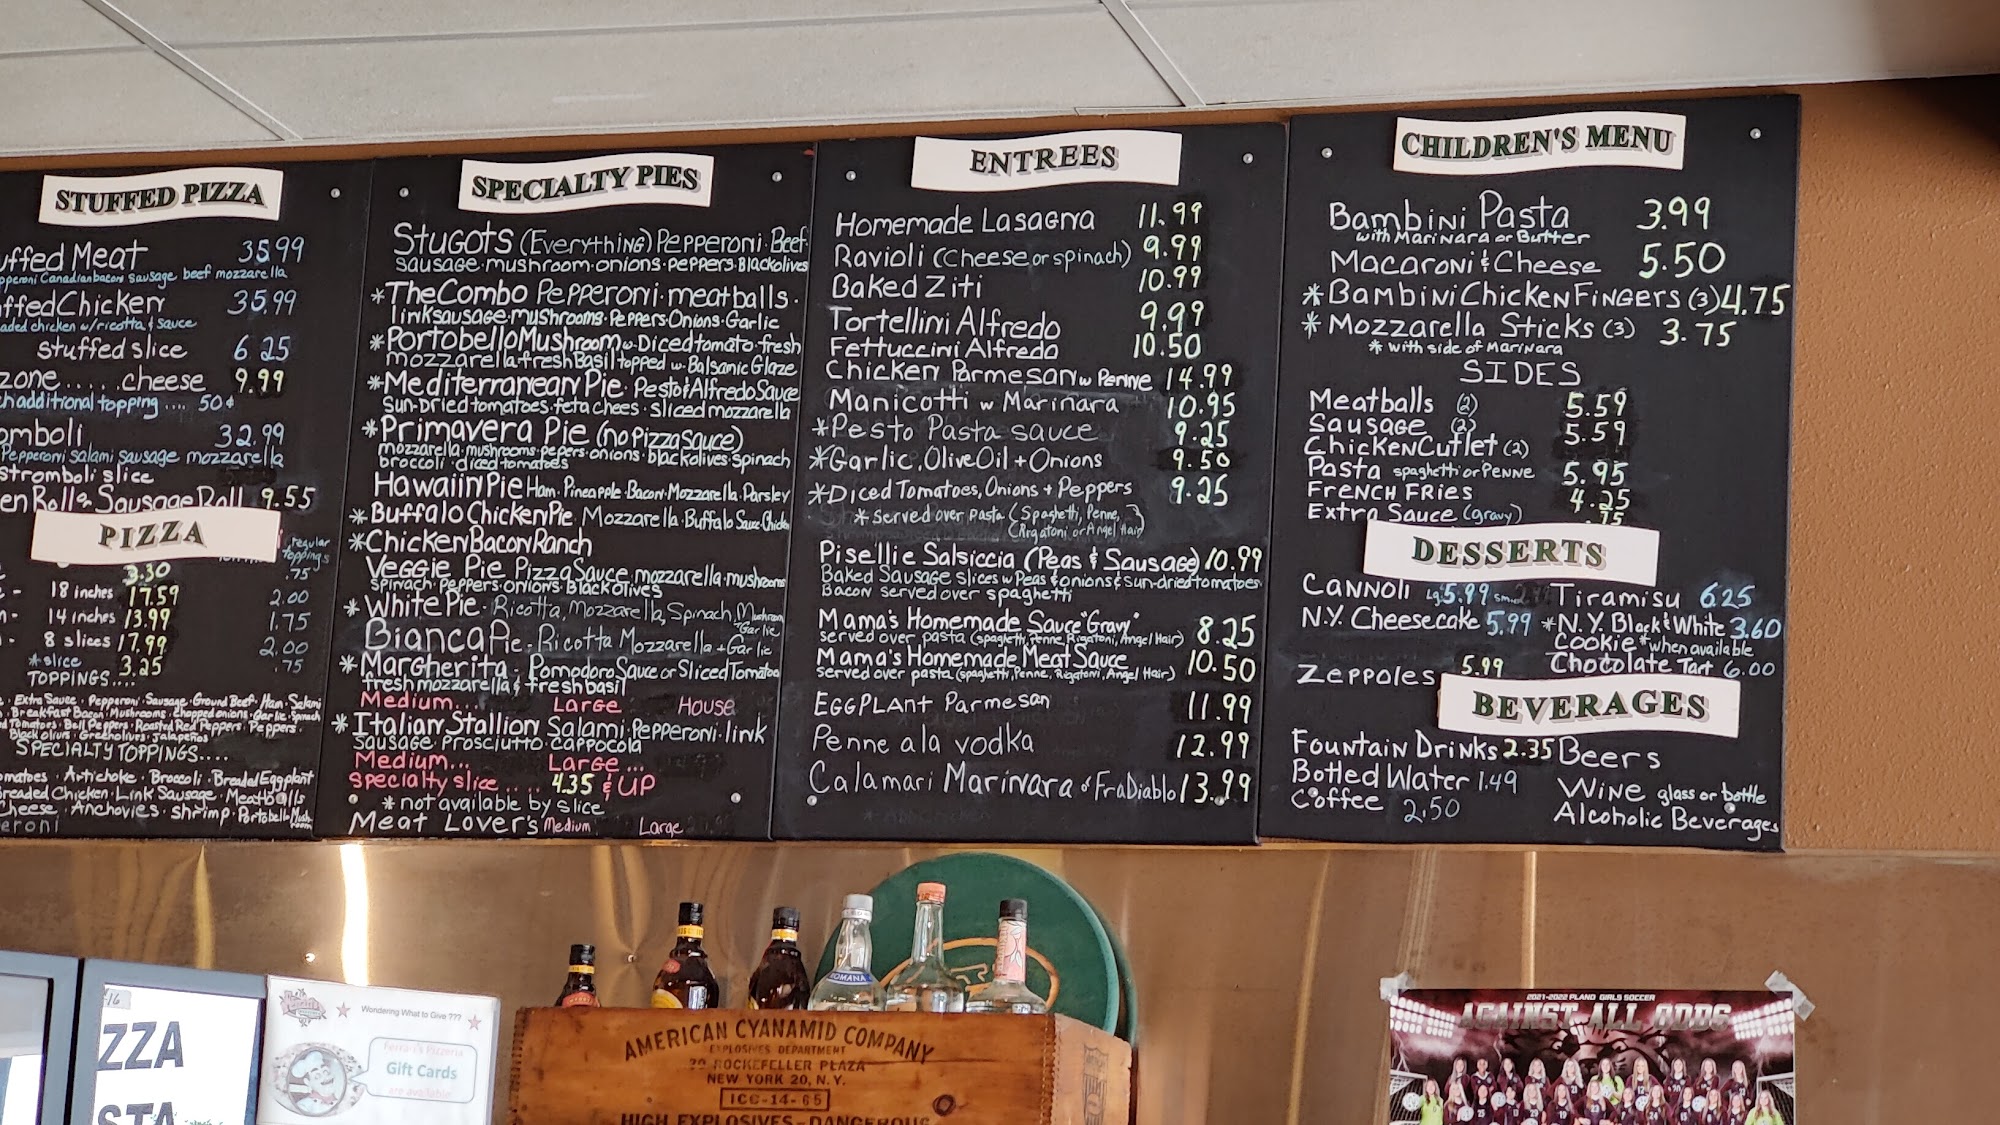 STUFFED PIZZA
uffed Meat 35.99
pperoni Canadian bacon Sausage beef mozzarella
uffed Chicken 35.99
aded chicken w/ricotta & sauce
Stuffed slice 6 25
zone..... cheese 9.99
ch additional topping .... 50¢
omboli 32.99
Pepperoni Salami Sausage mozzarella
stromboli slice
en Roll & Sausage Roll 9.55
PIZZA
regular toppings
3.30 .75
18 inches 17.59 2.00
14 inches 13.99 1.75
8 slices 17.99 2.00
*slice 3.25 .75
TOPPINGS....
Extra Sauce · Pepperoni · Sausage · Ground Beef · Ham · Salami
Breakfast Bacon · Mushrooms · Chopped onions · Garlic · Spinach
d Tomatoes · Bell Peppers · Roasted Red Peppers · Peppers ·
Black olives · Green olives · Jalapeños
SPECIALTY TOPPINGS....
omatoes · Artichoke · Broccoli · Breaded Eggplant
readed Chicken · Link Sausage · Meatballs
Cheese · Anchovies · shrimp · Portobello Mushroom
eroni
SPECIALTY PIES
Stugots (Everything) Pepperoni · Beef ·
Sausage · mushroom · onions · peppers · Black olives
*The Combo Pepperoni · meatballs ·
link sausage · mushrooms · Peppers · Onions · Garlic
*Portobello Mushroom w · Diced tomato · fresh
mozzarella · fresh Basil topped w · Balsamic Glaze
*Mediterranean Pie · Pesto & Alfredo Sauce
Sun-Dried tomatoes · feta chees · sliced mozzarella
*Primavera Pie (no Pizza Sauce)
mozzarella · mushrooms · pepers · onions · black olives · spinach
broccoli · diced tomatoes
Hawaiin Pie Ham · Pineapple · Bacon · Mozzarella · Parsley
*Buffalo Chicken Pie · Mozzarella · Buffalo Sauce · Chicken
*Chicken Bacon Ranch
Veggie Pie Pizza Sauce, mozzarella · mushrooms
spinach · peppers · onions · black olives
*White Pie · Ricotta, Mozzarella, Spinach, Mushroom
Garlic
Bianca Pie · Ricotta Mozzarella + Garlic
*Margherita · Pomodoro Sauce or Sliced Tomatoes
fresh mozzarella & fresh basil
Medium... Large ... HOUSE
*Italian Stallion Salami · Pepperoni · link
sausage Prosciutto · cappocola
Medium.... Large ...
Specialty slice ..... 4.35 & UP
*not available by slice
Meat Lover's Medium Large
ENTREES
Homemade Lasagna 11.99
Ravioli (Cheese or spinach) 9.99
Baked Ziti 10.99
Tortellini Alfredo 9.99
Fettuccini Alfredo 10.50
Chicken Parmesan w Penne 14.99
Manicotti w Marinara 10.95
*Pesto Pasta sauce 9.25
*Garlic, Olive Oil + Onions 9.50
*Diced Tomatoes, Onions + Peppers 9.25
*Served over Pasta (Spaghetti, Penne,
(Rigatoni or Angel Hair)
Pisellie Salsiccia (Peas & Sausage) 10.99
Baked Sausage slices w Peas & onions & sun-dried tomatoes
Bacon served over spaghetti
Mama's Homemade Sauce "Gravy" 8.25
served over pasta (spaghetti, Penne, Rigatoni, Angel Hair)
Mama's Homemade Meat Sauce 10.50
served over pasta (spaghetti, Penne, Rigatoni, Angel Hair)
EggPlant Parmesan 11.99
Penne ala vodka 12.99
Calamari Marinara or Fra Diablo 13.99
CHILDREN'S MENU
Bambini Pasta 3.99
with Marinara or Butter
Macaroni & Cheese 5.50
*Bambini Chicken Fingers (3) 4.75
*Mozzarella Sticks (3) 3.75
*with side of Marinara
SIDES
Meatballs (2) 5.59
Sausage (2) 5.59
Chicken Cutlet (2)
Pasta spaghetti or Penne 5.95
French Fries 4.25
Extra Sauce (gravy) .75
DESSERTS
Cannoli Lg 5.99 sm Tiramisu 6.25
N.Y. Cheesecake 5.99 *N.Y. Black & White 3.60
Cookie *when available
Zeppoles 5.99 Chocolate Tart 6.00
BEVERAGES
Fountain Drinks 2.35 Beers
Botled Water 1.49 Wine glass or bottle
Coffee 2.50 Alcoholic Beverages
ZZA
STA
Wondering What to Give ???
Ferrari's Pizzeria
Gift Cards
are available
ROMANA
AMERICAN CYANAMID COMPANY
EXPLOSIVES DEPARTMENT
30 ROCKEFELLER PLAZA
NEW YORK 20, N.Y.
ICC-14-65
HIGH EXPLOSIVES-DANGEROUS
2021-2022 PLANO GIRLS SOCCER
AGAINST ALL ODDS